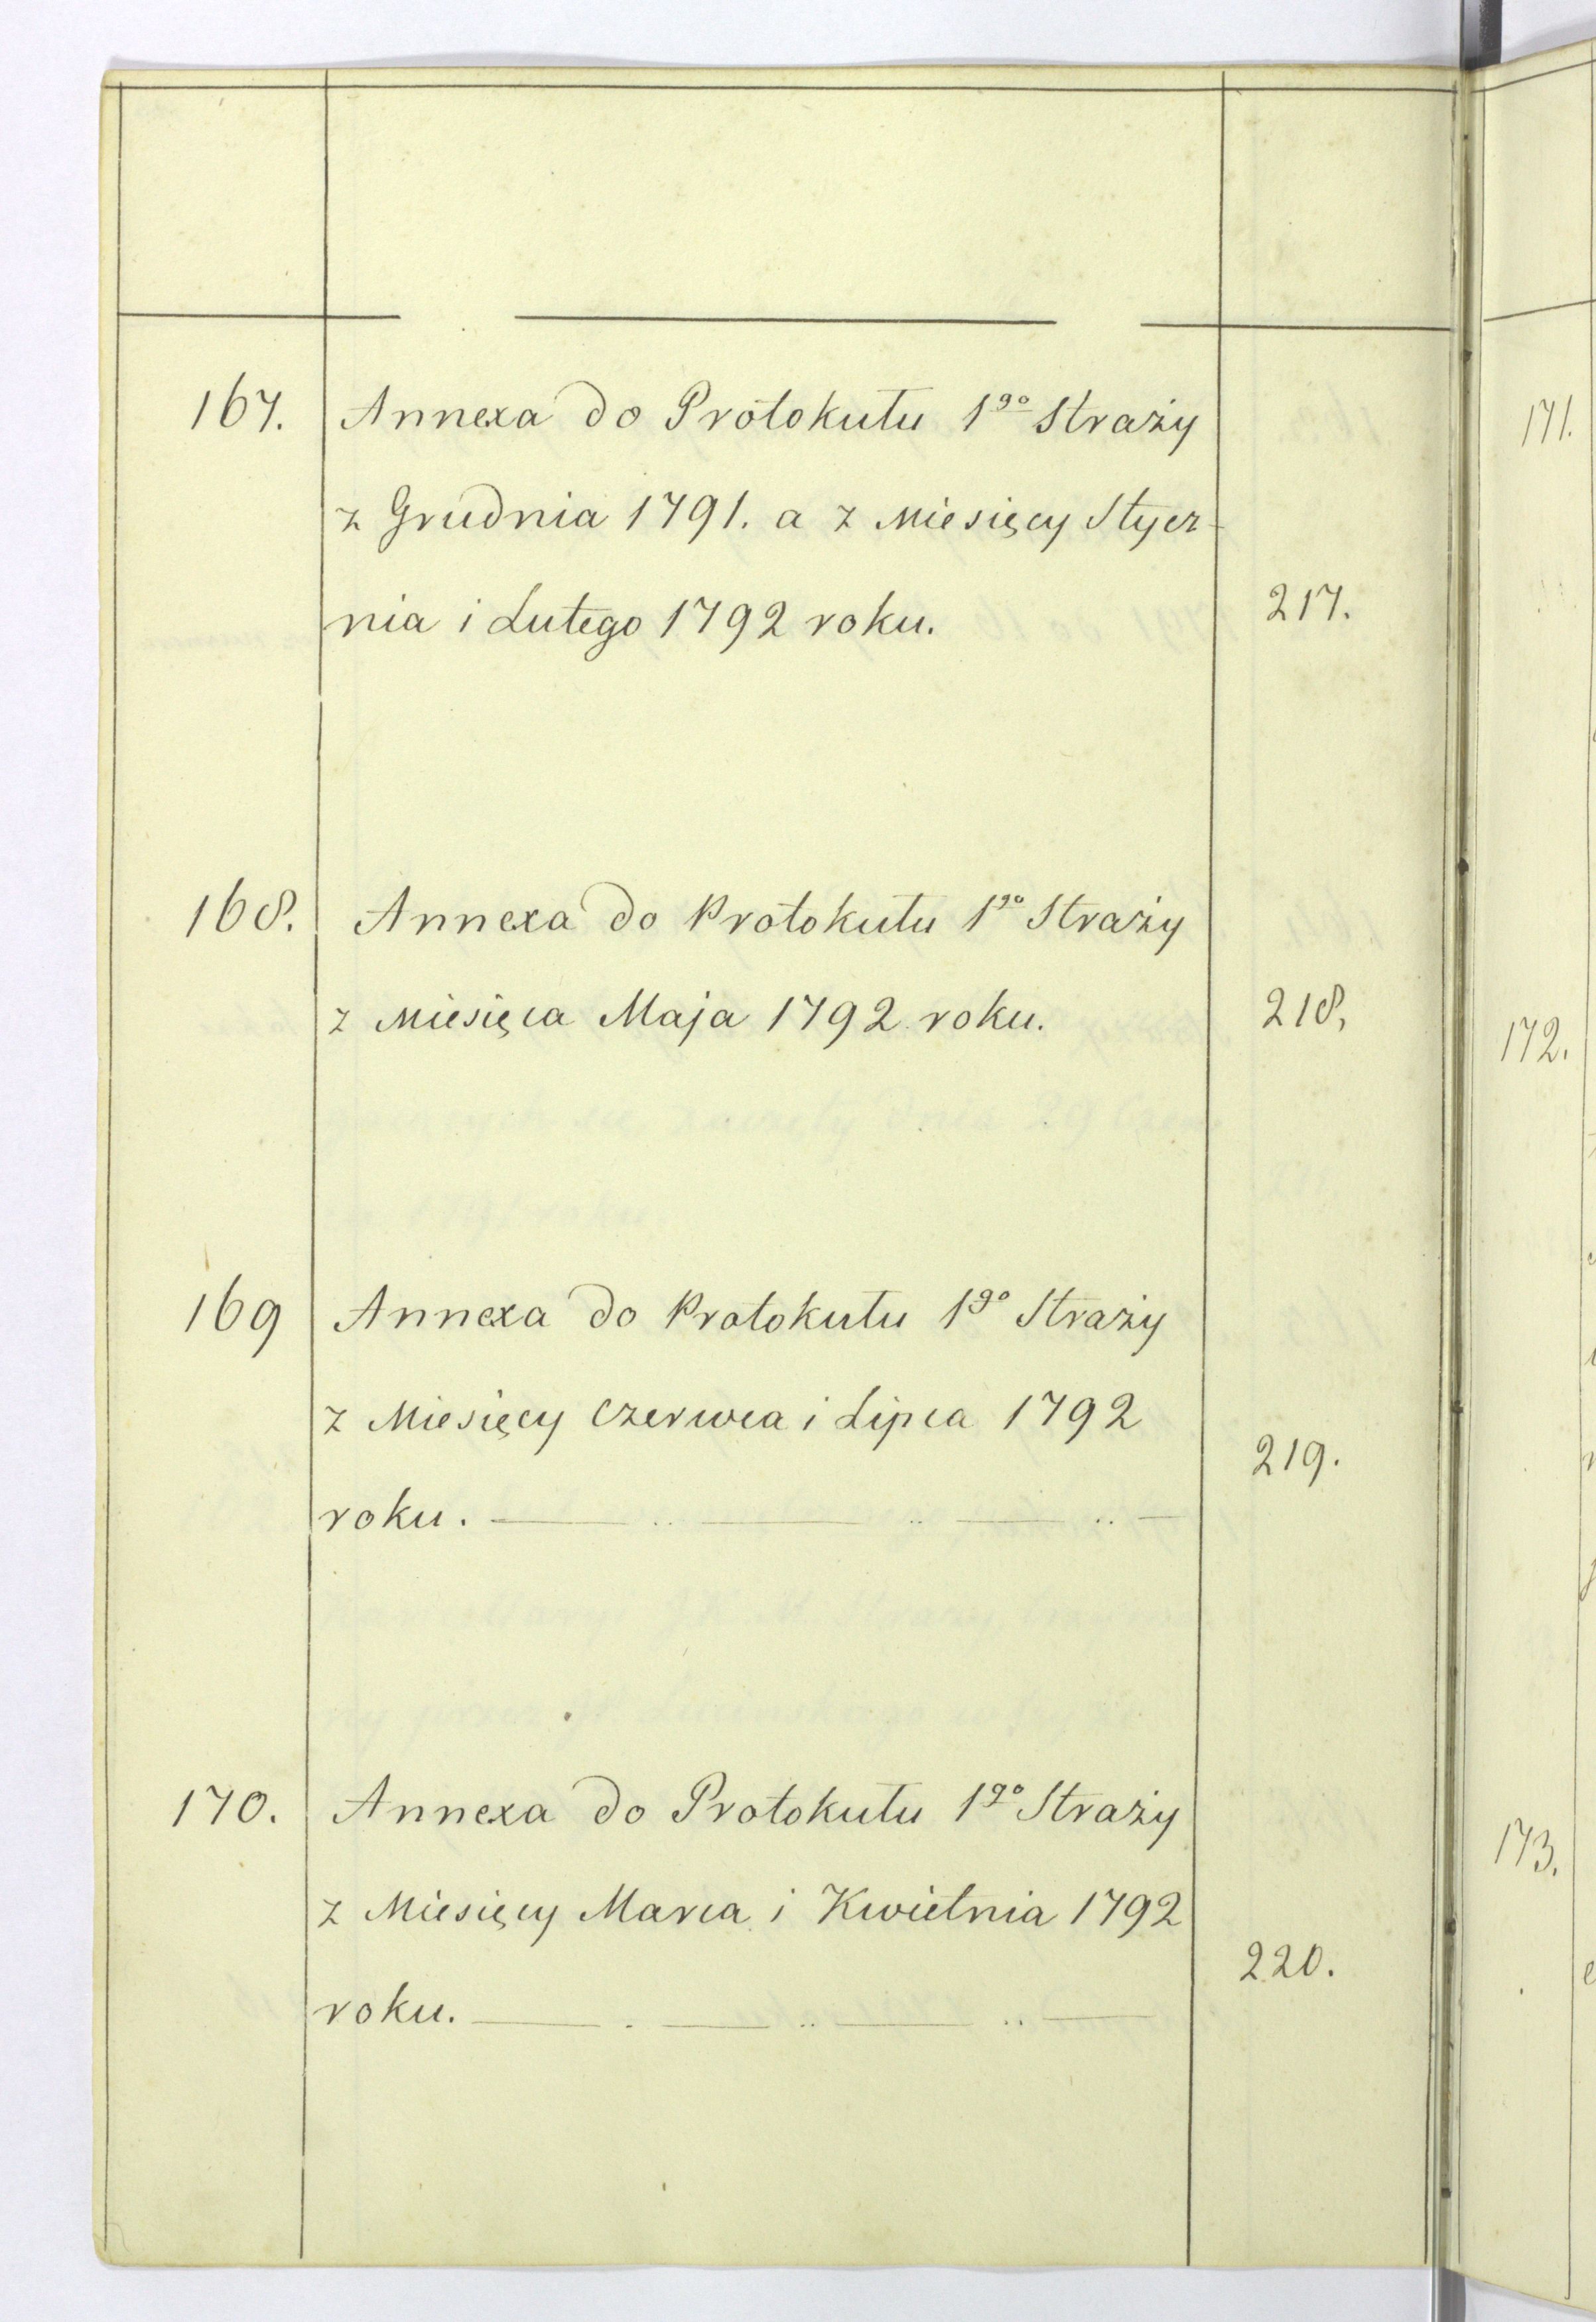 167. Annexa do Protokułu 1go Straży
z Grudnia 1791. a z Miesięcy Stycz-
nia i Lutego 1792 roku. 217.
168. Annexa do Protokułu 1go Straży
z Miesięca Maja 1792 roku. 218.
169 Annexa do Protokułu 1go Straży
z Miesięcy Czerwca i Lipca 1792
219.
roku.
170. Annexa do Protokułu 1go Straży
z Miesięcy Marca i Kwietnia 1792
220.
roku.
171.
172.
173.